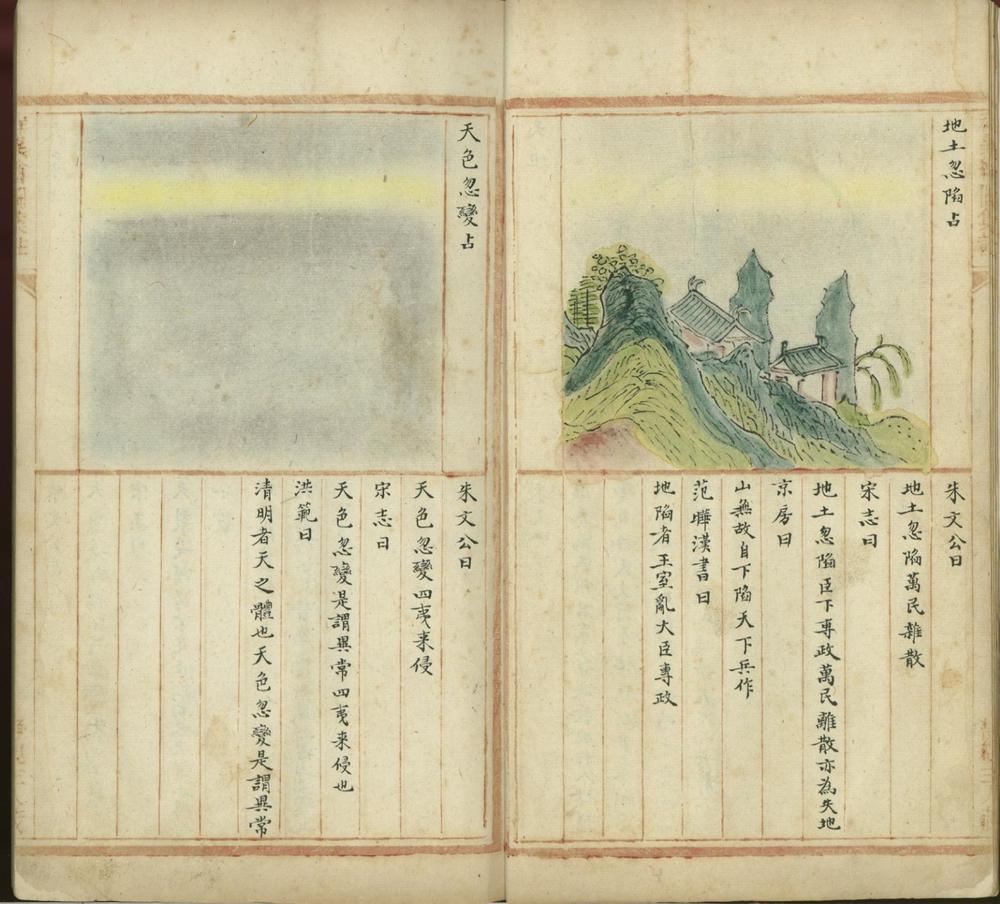 地土忽陷占
朱文公曰
地土忽陷萬民離散
宋志曰
地土忽陷臣下專政萬民離散亦為失地
京房曰
山無故自下陷天下兵作
范曄漢書曰
地陷者王室亂大臣專政
天色忽變占
朱文公曰
天色忽變四夷来侵
宋志曰
天色忽變是謂異常四夷来侵也
洪範曰
清明者天之體也天色忽變是謂異常